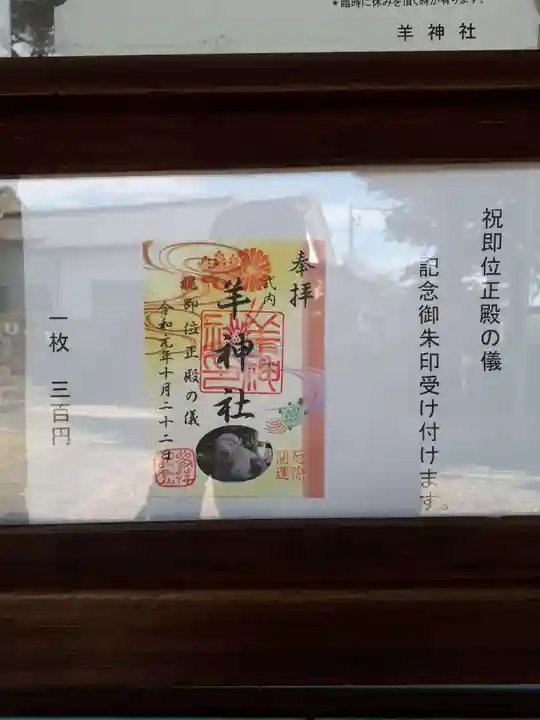 *臨時に休みを頂く時が有ります。
羊神社
祝即位正殿の儀
記念御朱印受け付けます。
奉拝
式内
羊神社
祝即位正殿の儀
令和元年十月二十二日
厄除
開運
一枚 三百円